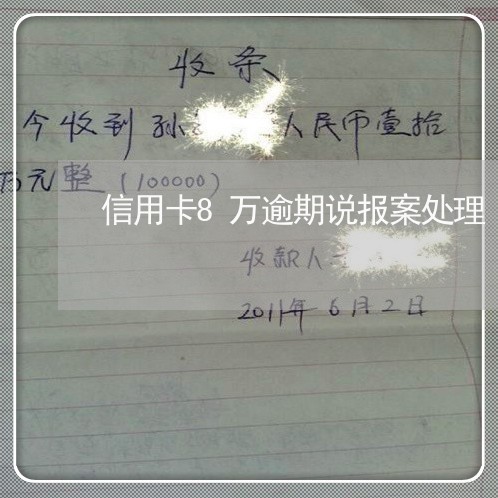 收条
今收到孙 人民币壹拾
万元整（100000）
信用卡8 万逾期说报案处理
收款人
2011年6月2日